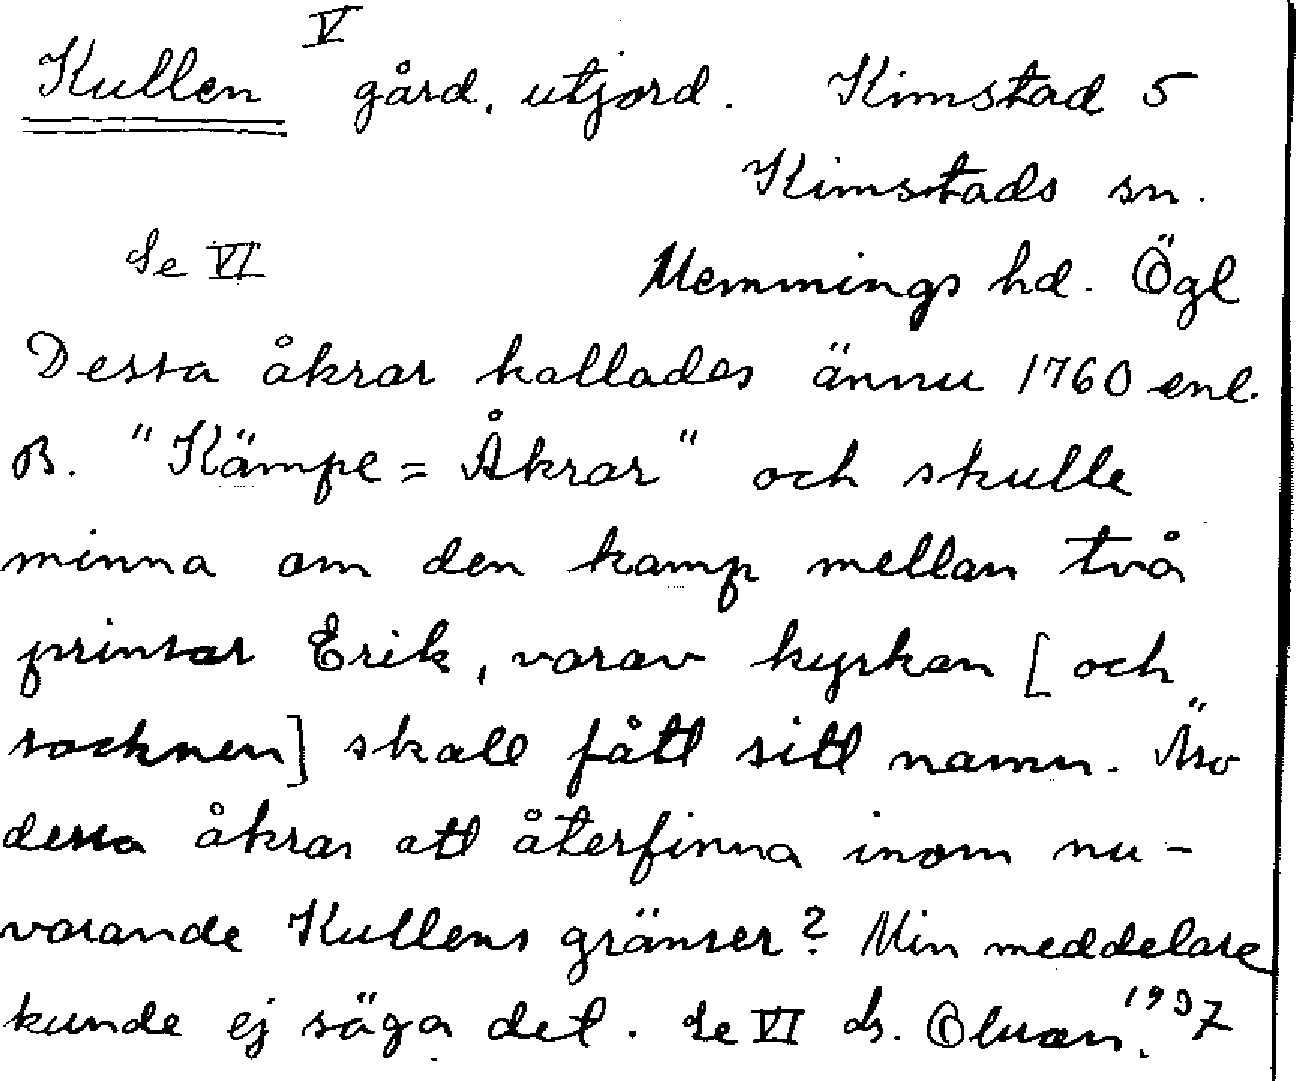 V
Kullen gård, utjord. Kimstad 5
Kimstads sn.
Se VI Memmings hd. Ögl
Dessa åkrar kallades ännu 1760 enl.
B. "Kämpe=Åkrar" och skulle
minna om den kamp mellan två
prinsar Erik, varav kyrkan [och
socknen] skall fått sitt namn. Äro
dessa åkrar att återfinna inom nu-
varande Kullens gränser? Min meddelare
kunde ej säga det. Se VI ds. 1937